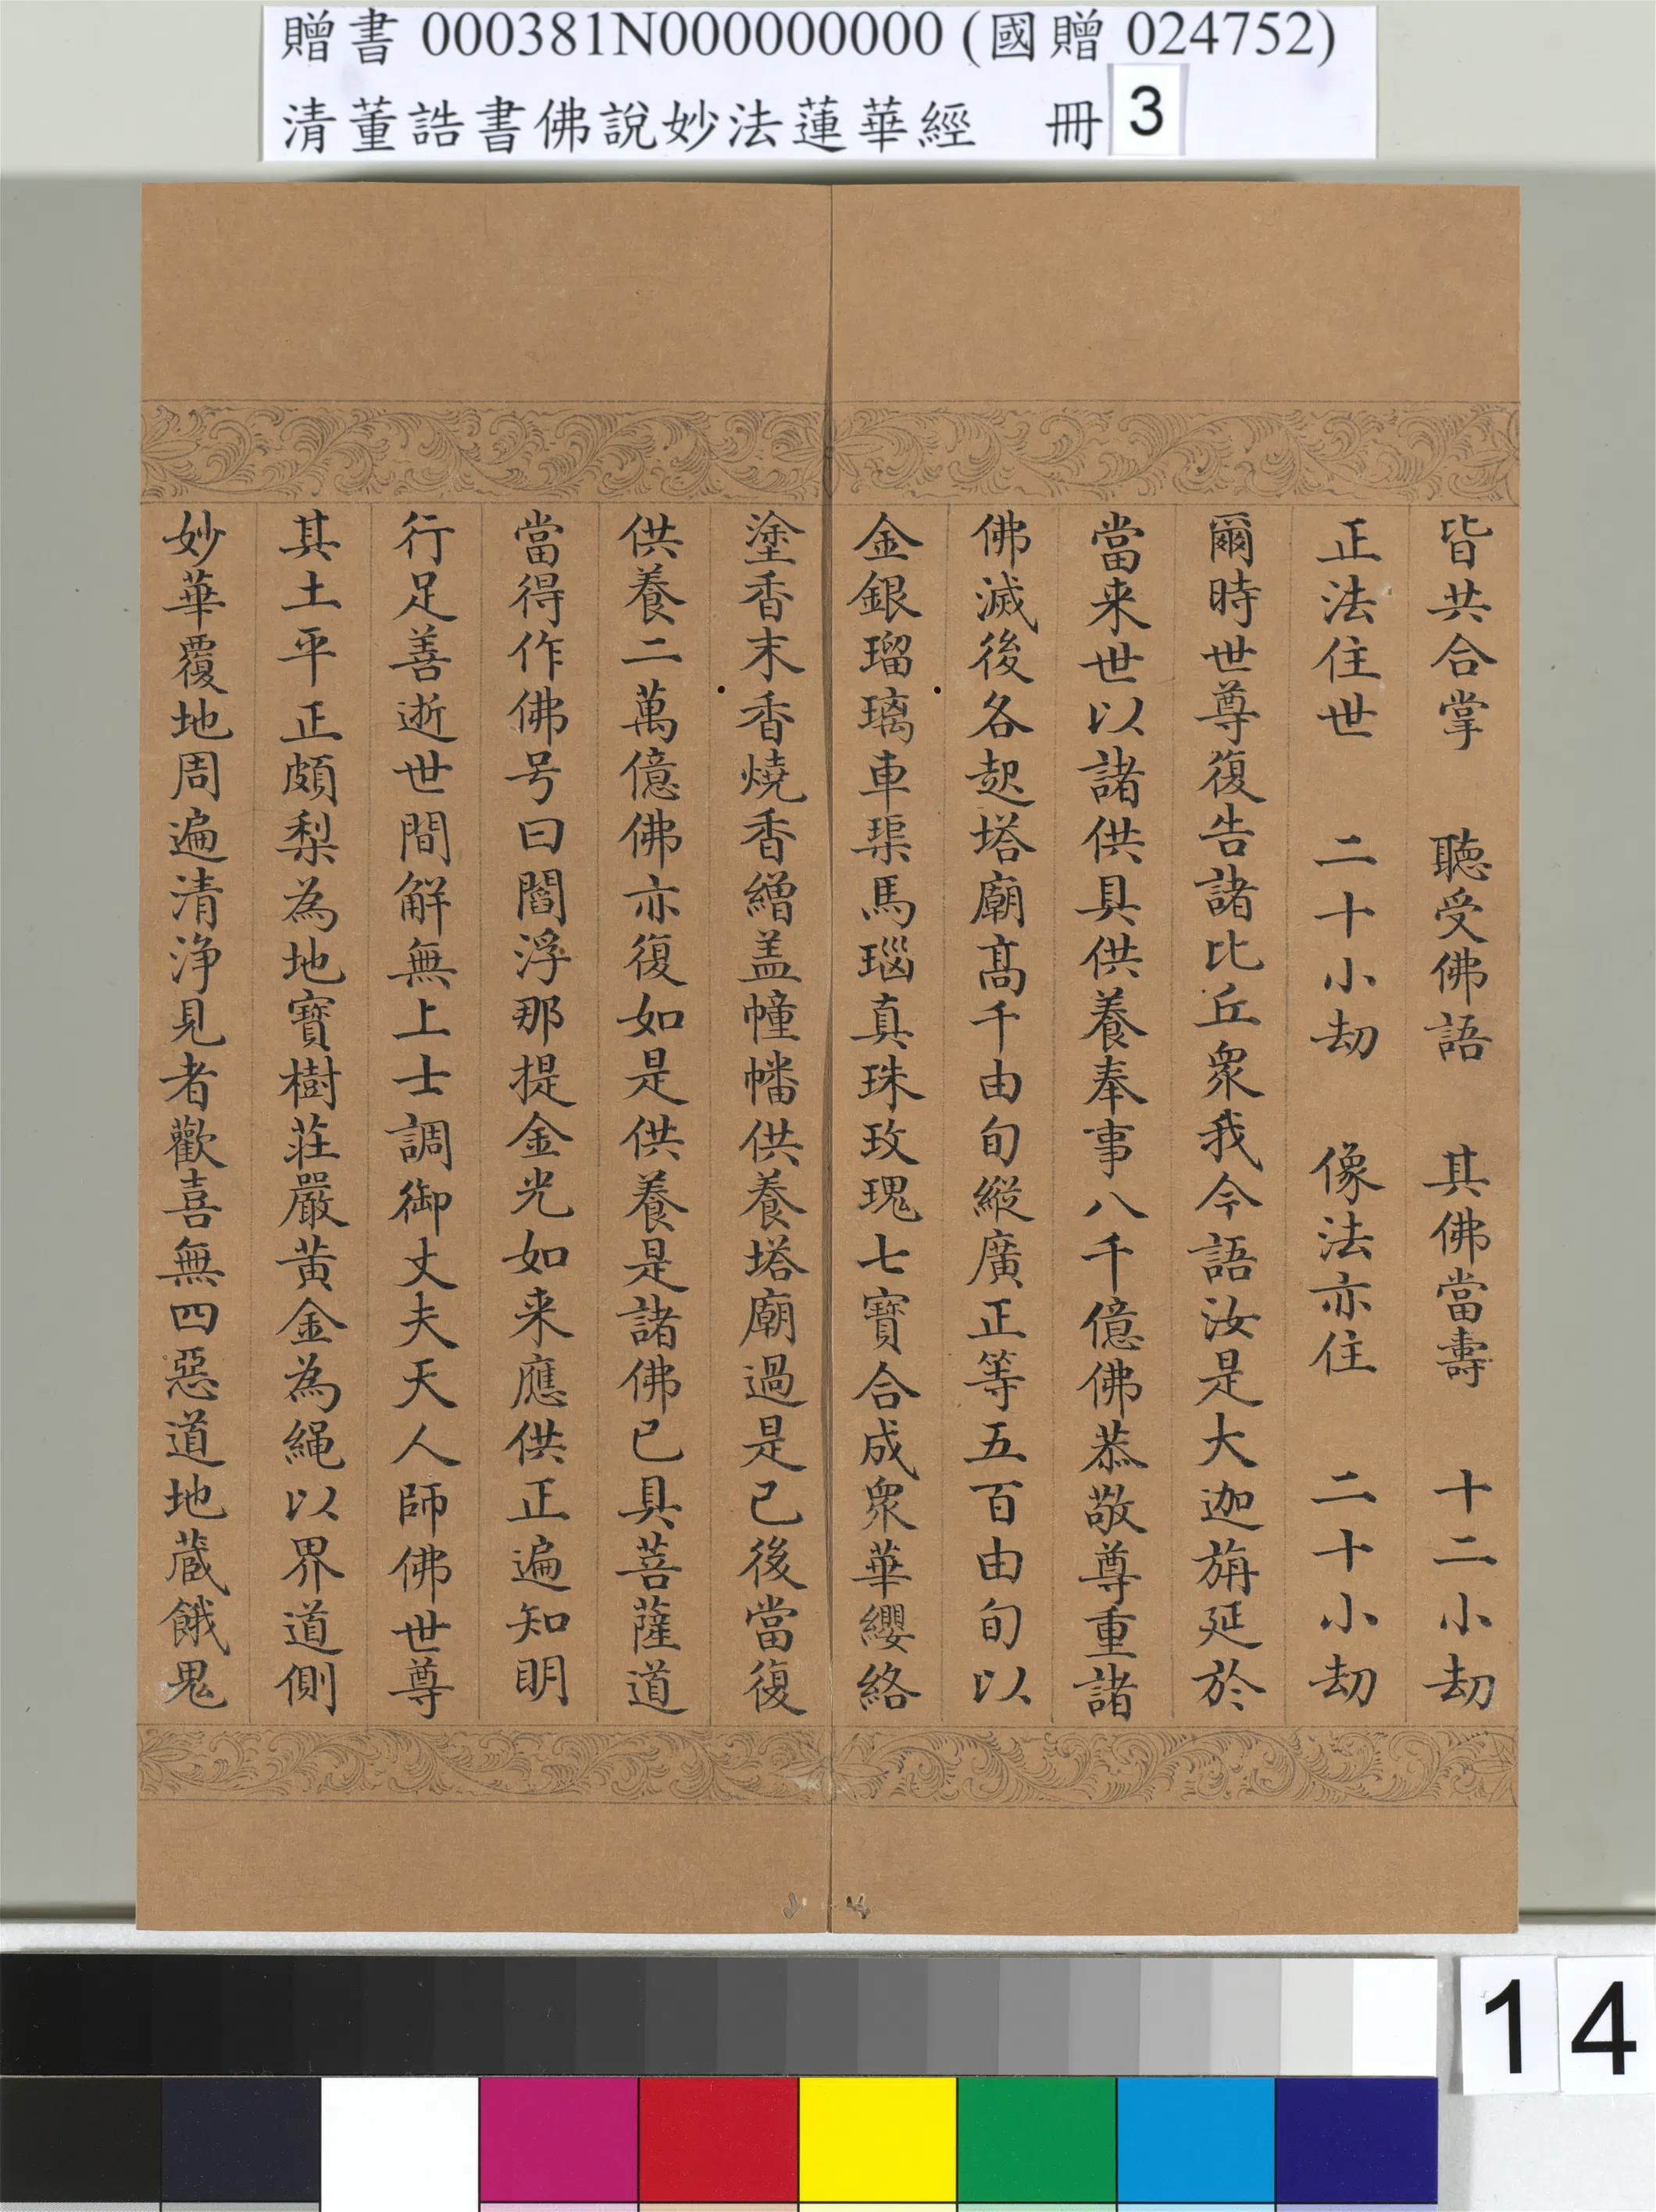 贈書 000381N000000000 (國贈 024752)
清董誥書佛說妙法蓮華經 冊 3
皆共合掌 聽受佛語 其佛當壽 十二小劫
正法住世 二十小劫 像法亦住 二十小劫
爾時世尊復告諸比丘衆我今語汝是大迦旃延於
當来世以諸供具供養奉事八千億佛恭敬尊重諸
佛滅後各起塔廟髙千由旬縱廣正等五百由旬以
金銀瑠璃車璖馬瑙真珠玫瑰七寶合成衆華纓絡
塗香末香燒香繒盖幢幡供養塔廟過是已後當復
供養二萬億佛亦復如是供養是諸佛已具菩薩道
當得作佛号曰閻浮那提金光如来應供正遍知明
行足善逝世間解無上士調御丈夫天人師佛世尊
其土平正頗梨為地寶樹莊嚴黃金為繩以界道側
妙華覆地周遍清淨見者歡喜無四惡道地蔵餓鬼
14